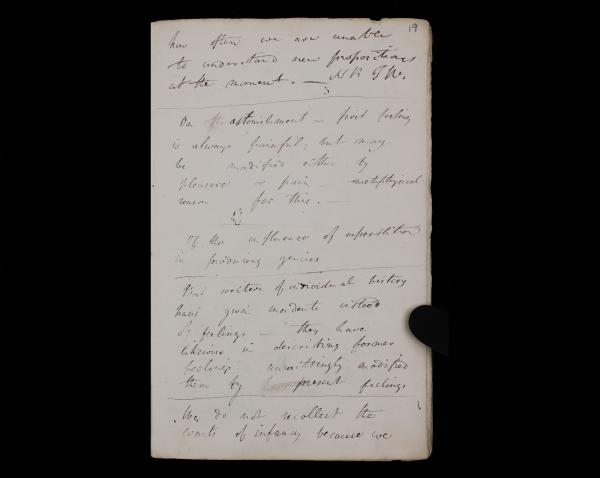 19
how often we are unable
to understand new propositions
at the moment. — NB T W.
On the astonishment — first feeling
is always painful; but may
be modified either by
pleasure or pain — metaphysical
reason for this. —
Of the influence of superstition
in producing genius
Most writers of individual history
have given incidents instead
of feelings — they have
likewise in describing former
feelings unwittingly modified
them by present feelings
We do not recollect the
events of infancy because we